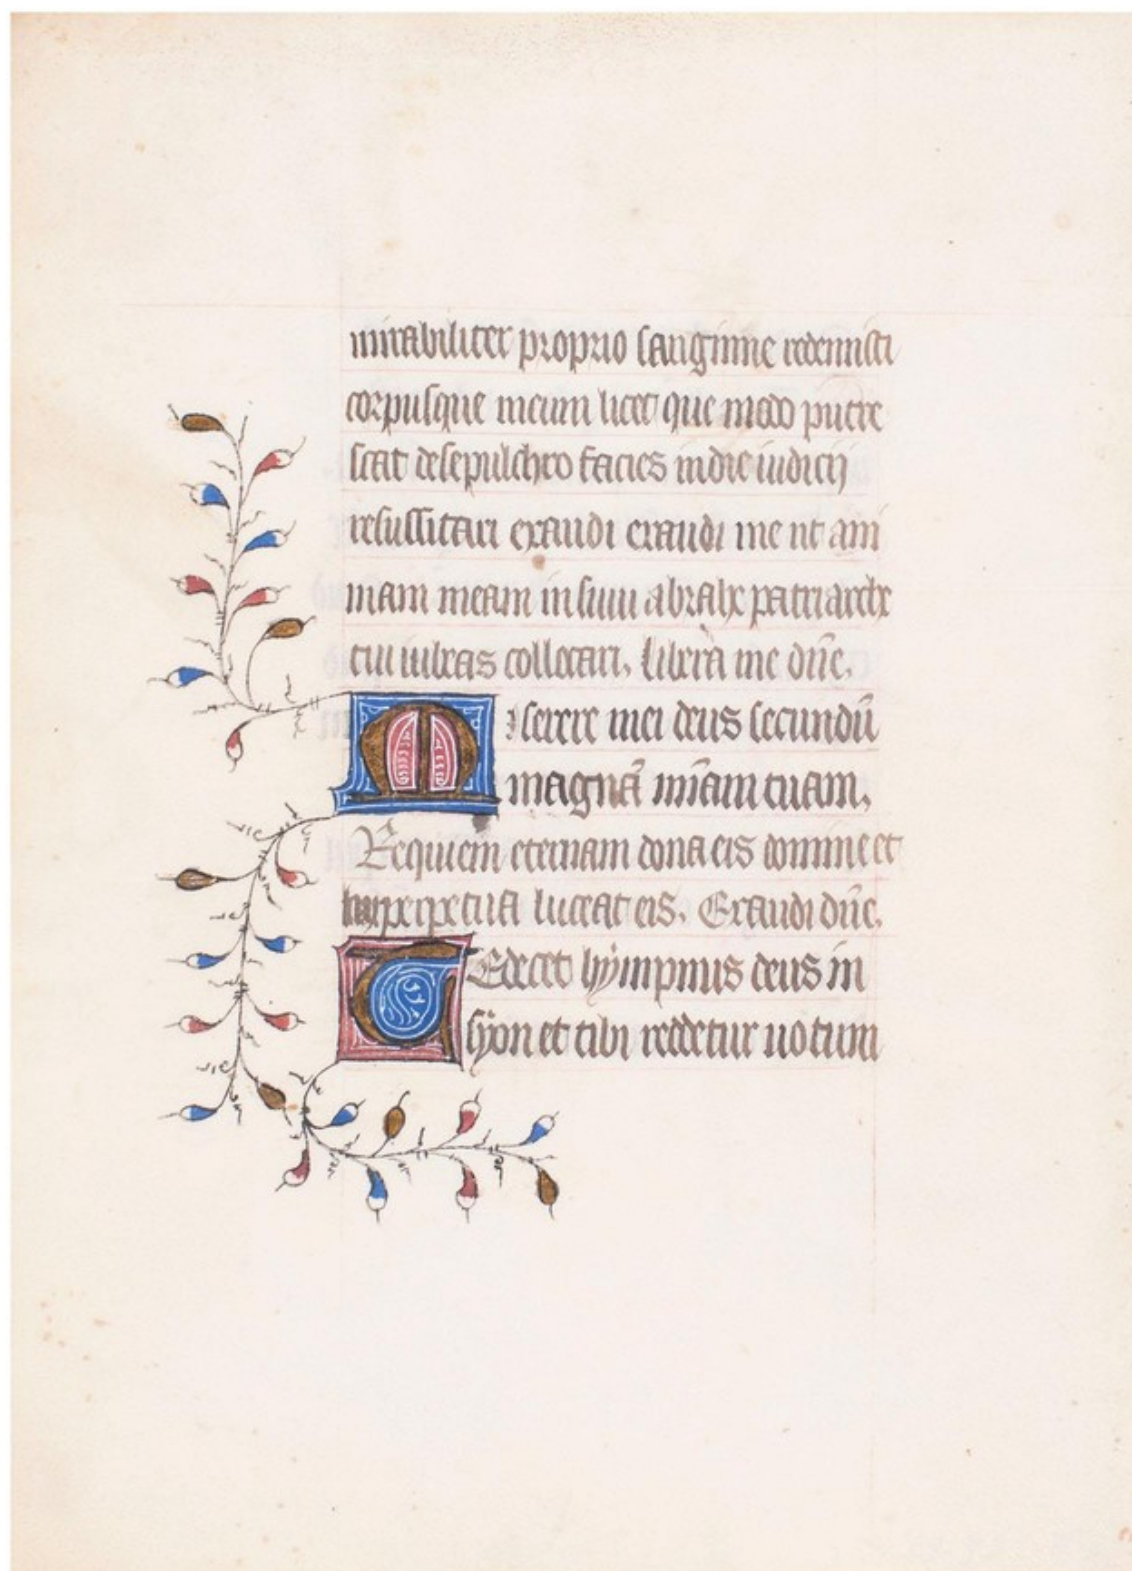 mirabiliter proprio sanguine redemisti
corpusque meum licet que modo putre
scat de sepulchro facies in die iudicij
resussitari exaudi exaudi me ut ani
mam meam in sinu abrahe patriarche
tui iubeas collocari, libera me dn̄e,
Miserere mei deus secundū
magnā mīam tuam,
Requiem eternam dona eis domine et
lux perpetua luceat eis. Exaudi dn̄e,
TE decet hẏmpnus deus in
sẏon et tibi reddetur uotum